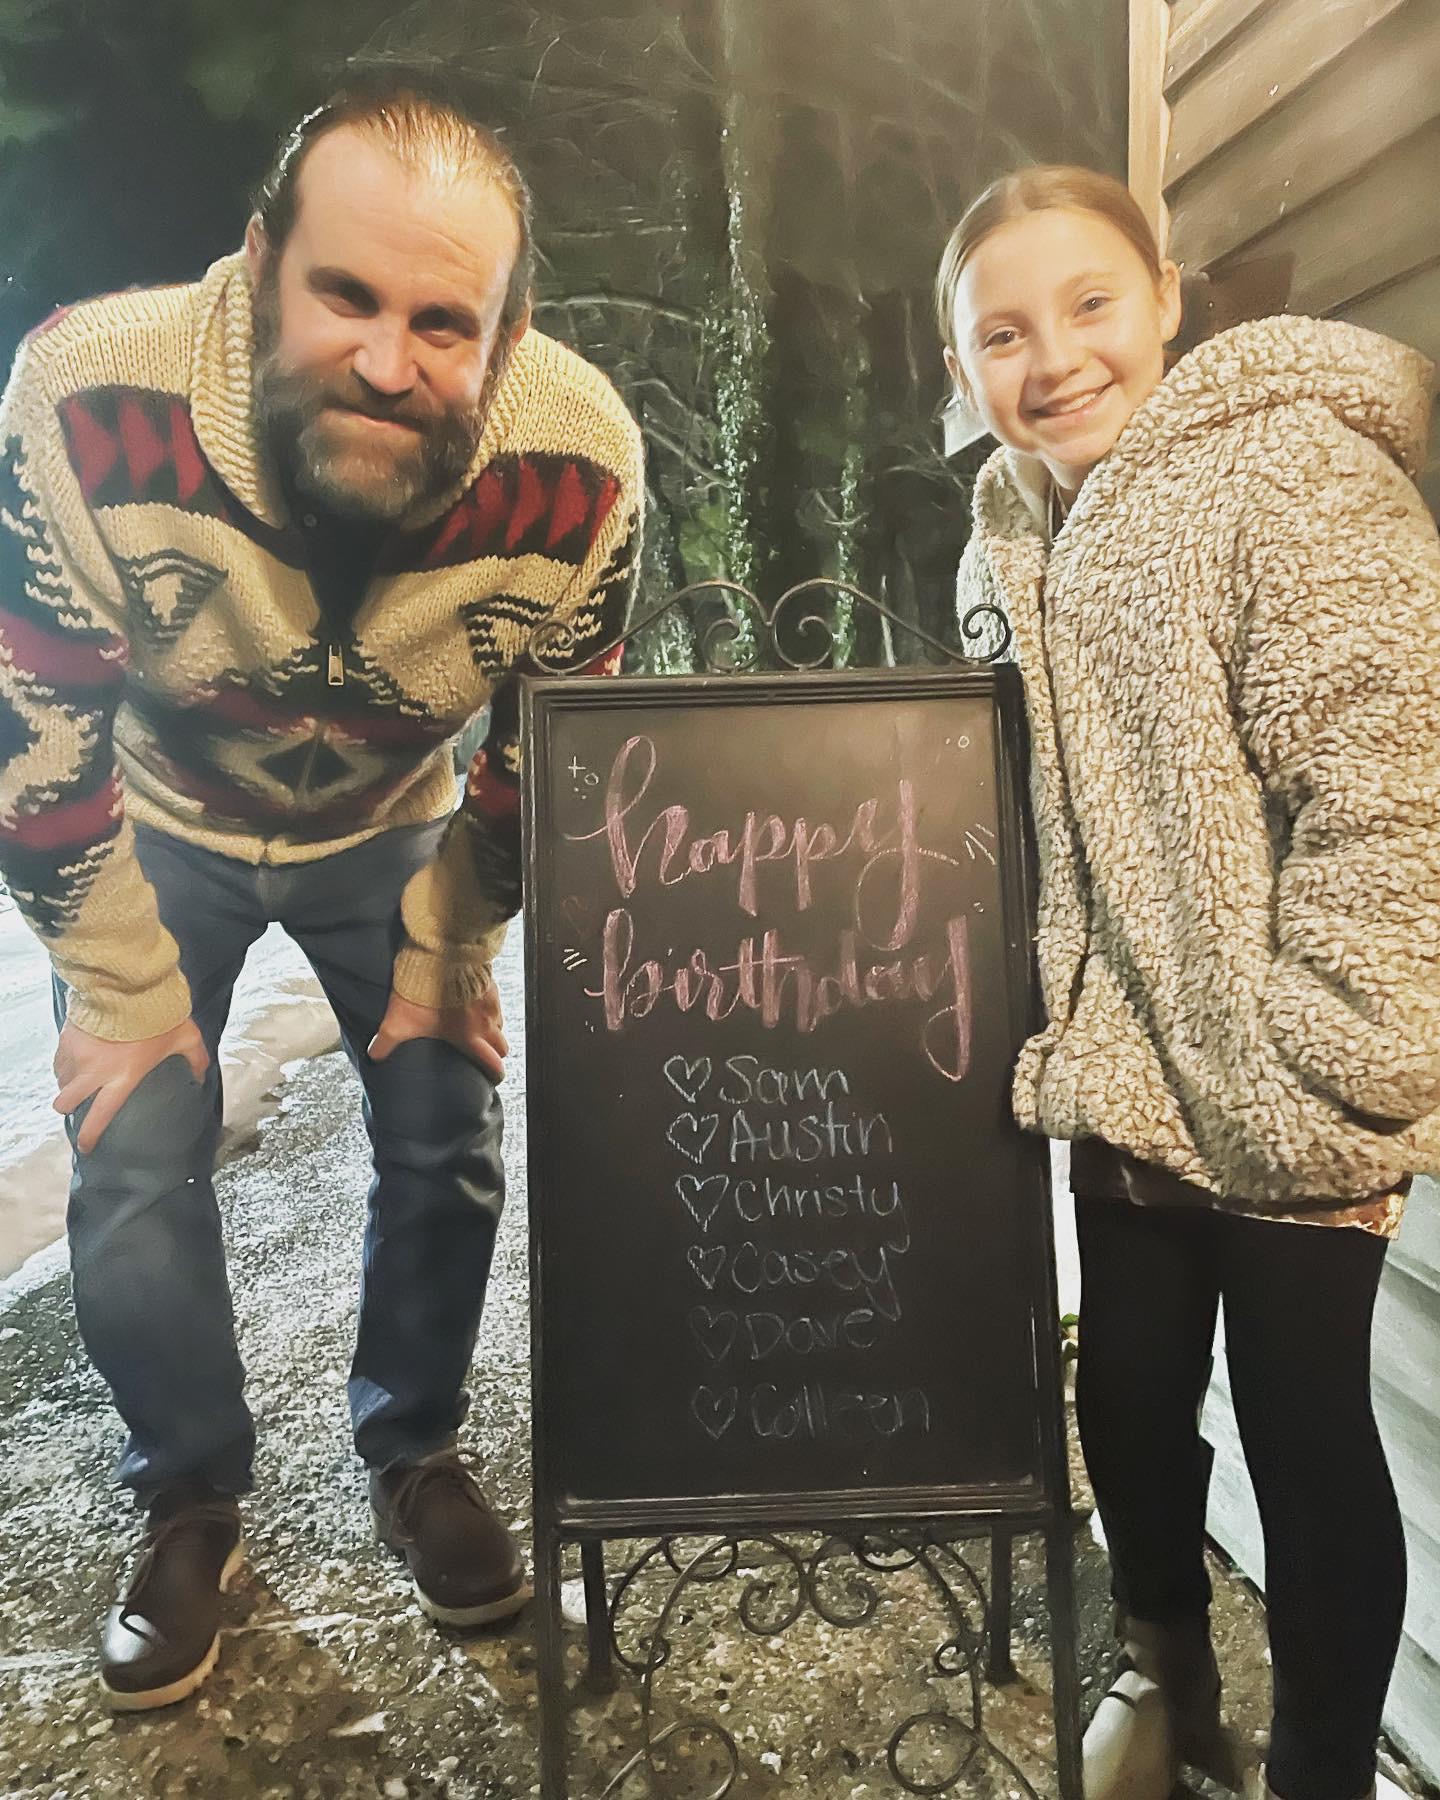 happy
birthday
♡ Sam
♡ Austin
♡ Christy
♡ Casey
♡ Dave
♡ Colleen